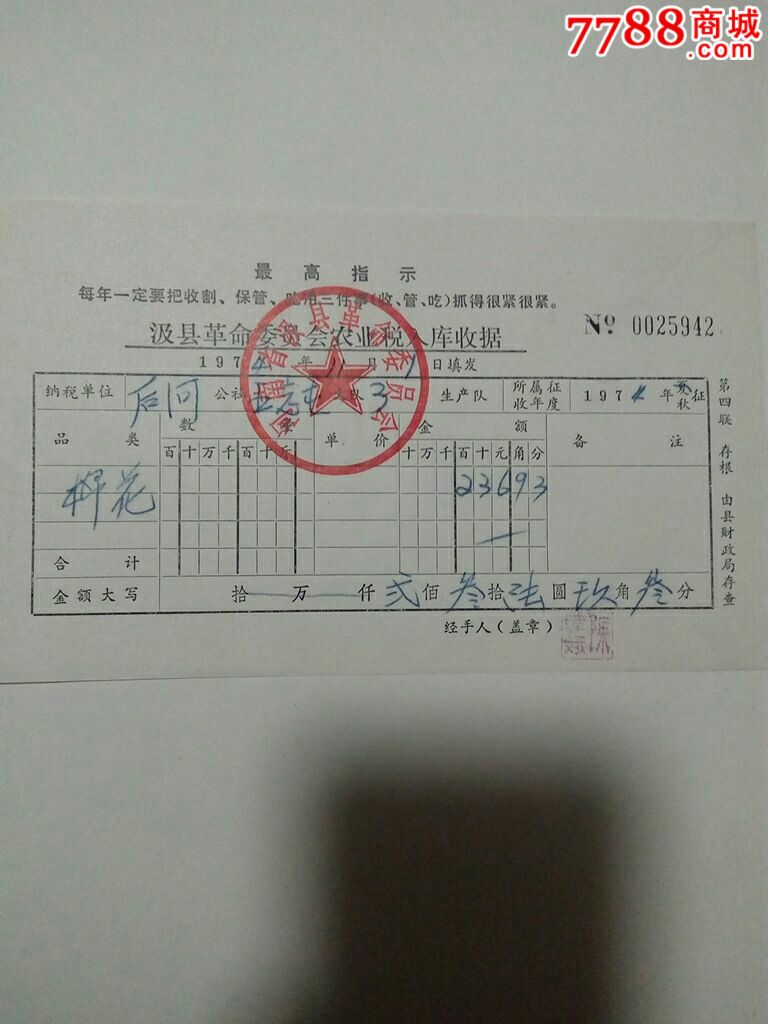 7788商城
.com
最高指示
每年一定要把收割、保管、吃用三件事(收、管、吃)抓得很紧很紧。
汲县革命委员会农业税入库收据
№ 0025942
1974年11月 日填发
纳税单位 后河 公社 大队 3 生产队 所属征收年度 1974年夏秋征
品类 数量 单价 金额 备注
百十万千百十斤 十万千百十元角分
棉花 23693
合计
金额大写 拾万仟弍佰叁拾陆圆玖角叁分
经手人(盖章)
第四联 存根 由县财政局存查
河南省汲县革命委员会